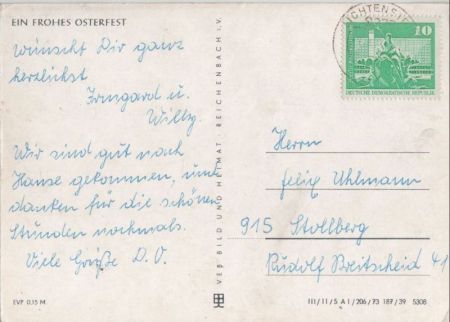 EIN FROHES OSTERFEST
wünscht Dir ganz
herzlichst
Irmgard u.
Willy.
Wir sind gut nach
Hause gekommen, und
danken für die schönen
Stunden nochmals.
Viele Grüße D. O.
EVP 0,15 M
VEB BILD UND HEIMAT, REICHENBACH i. V.
LICHTENSTEIN
10
DEUTSCHE DEMOKRATISCHE REPUBLIK
Herrn
Felix Uhlmann
915 Stollberg
Rudolf Breitscheid 41
III/11/5 A 1/206/73 187/39 5308